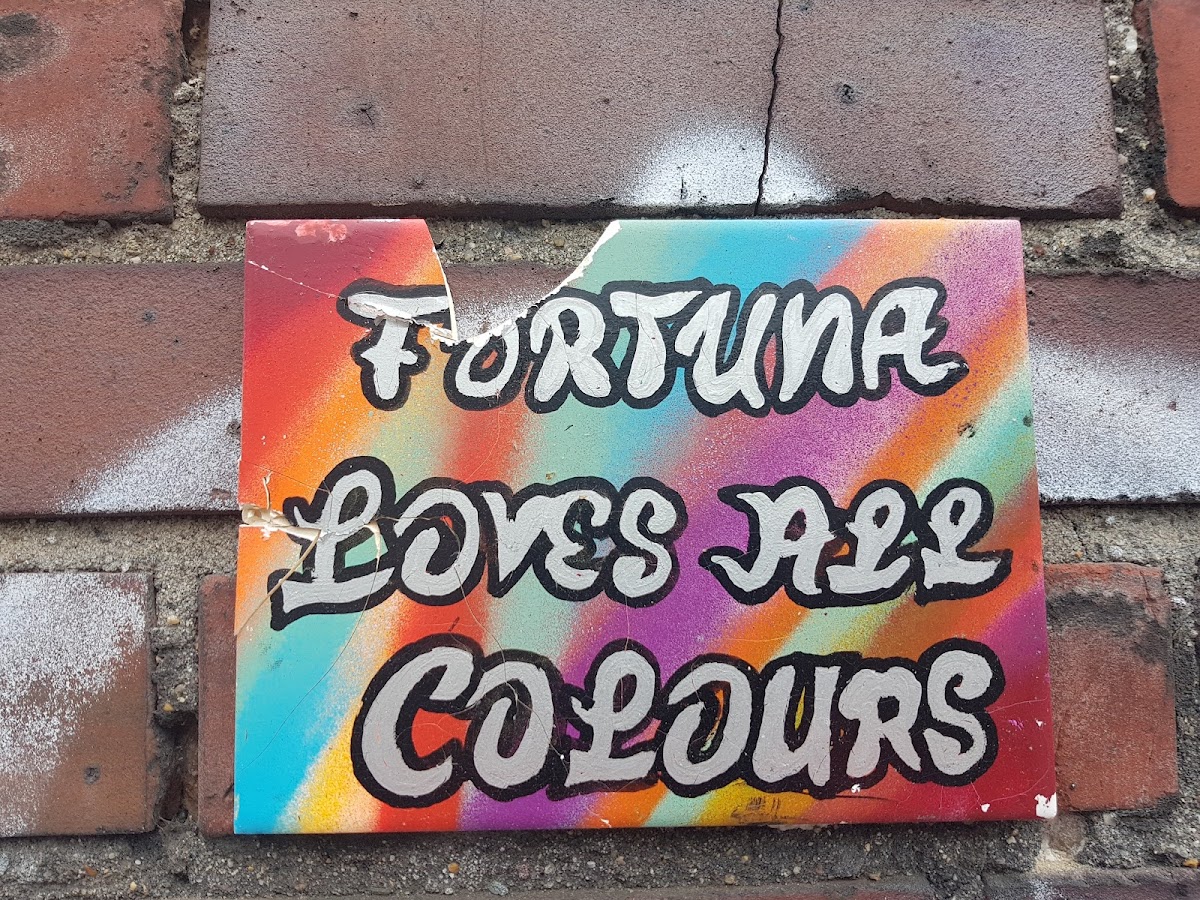 FORTUNA
LOVES ALL
COLOURS